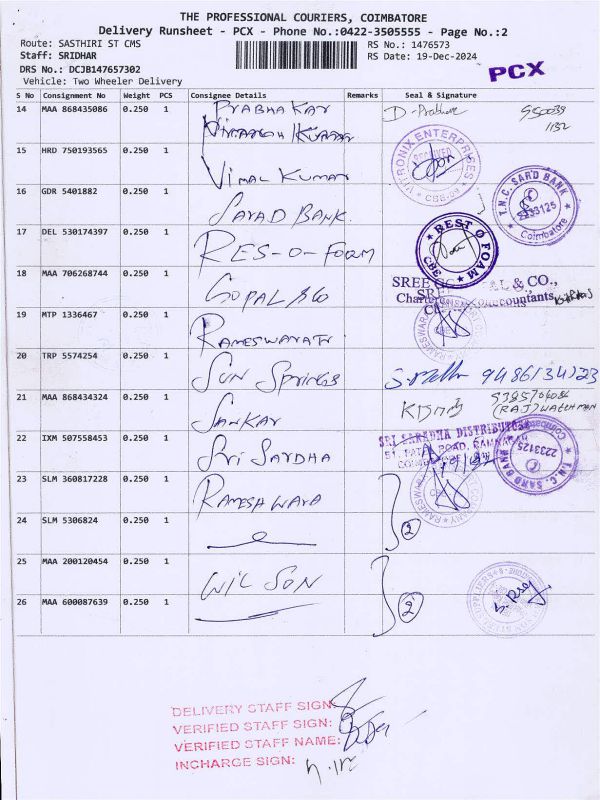 THE PROFESSIONAL COURIERS, COIMBATORE
Delivery Runsheet - PCX - Phone No.:0422-3505555 - Page No.:2
Route: SASTHIRI ST CMS
RS No.: 1476573
Staff: SRIDHAR
RS Date: 19-Dec-2024
DRS No.: DCJB147657302
Vehicle: Two Wheeler Delivery
PCX
S No Consignment No Weight PCS Consignee Details Remarks Seal & Signature
14 MAA 868435086 0.250 1 Prabhakar
15 HRD 750193565 0.250 1 Vimal Kumar
VITRONIX ENTERPRISES
RECEIVED
16 GDR 5401882 0.250 1 Sarad Bank
T.N.C. SARD BANK
2233125
Coimbatore
17 DEL 530174397 0.250 1 RES-O-FOAM
BEST O FOAM
CBE
18 MAA 706268744 0.250 1 Gopal & Co
SREE & CO.,
Chartered Accountants
19 MTP 1336467 0.250 1 Rameswara
20 TRP 5574254 0.250 1 Sun Springs 9486134123
21 MAA 868434324 0.250 1 Sankar
(RAJ) WATCHMAN
22 IXM 507558453 0.250 1 Sri Sardha
SRI SARADHA DISTRIBUTORS
T.N.C. SARD BANK
2233125
Coimbatore
23 SLM 360817228 0.250 1 Rameshwara
24 SLM 5306824 0.250 1
2
25 MAA 200120454 0.250 1 WILSON
26 MAA 600087639 0.250 1
2
DELIVERY STAFF SIGN:
VERIFIED STAFF SIGN:
VERIFIED STAFF NAME:
INCHARGE SIGN: